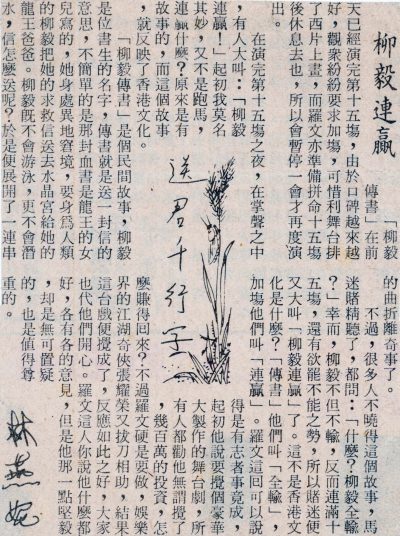 柳毅連贏
「柳毅
傳書」在前
天已經演完第十五塲,由於口碑越來越
好,觀眾紛紛要求加塲,可惜利舞台排
了西片上畫,而羅文亦準備拼命十五塲
後休息去也,所以會暫停一會才再度演
在演完第十五塲之夜,在掌聲之中
,有人大叫:「柳毅
連贏!」起初我莫名
其妙,又不是跑馬,
連贏什麼?原來是有
故事的,而這個故事
,就反映了香港文化。
「柳毅傳書」是個民間故事,柳毅
是位書生的名字,傳書就是送一封信的
意思,不簡單的是那封血書是龍王的女
兒寫的,她身處異地窘境,要身爲人類
的柳毅把她的求救信送去水晶宮給她的
龍王爸爸。柳毅既不會游泳,更不會潛
水,信怎麼送呢?於是便展開了一連串
的曲折離奇事了。
不過,很多人不曉得這個故事,馬
迷賭精聽了,都問:「什麼?柳毅全輸
?」幸而,柳毅不但不輸,反而連滿十
五塲,還有欲罷不能之勢,所以賭迷便
又大叫「柳毅連贏」了。這不是香港文
化是什麼?「傳書」他們叫「全輸」,
加塲他們叫「連贏」。羅文這回可以說
得是有志者事竟成,
起初他說要攪個豪華
大製作的舞台劇,所
有人都勸他無謂攪了
,幾百萬的投資,怎
麼賺得回來?不過羅文硬是要做,娛樂
界的江湖奇俠張耀榮又拔刀相助,結果
這台戲便攪成了,反應如此之好,大家
也代他們開心。羅文這人你說他什麼都
好,各有各的意見,但是他那一點堅毅
,却是無可置疑
的,也是值得尊
重的。
送君千行字
林燕妮